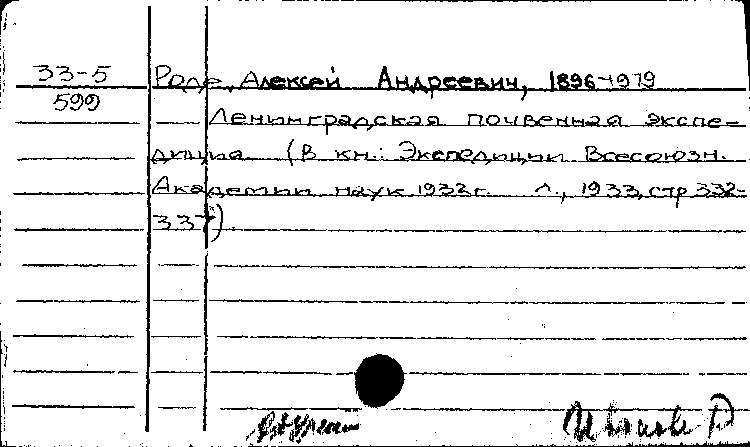 33-5
Роде, Алексей Андреевич, 1896-1979
599
Ленинградская почвенная экспе-
диция. (В кн.: Экспедиции Всесоюзн.
Академии наук 1932 г. Л., 1933, стр 332-
337).